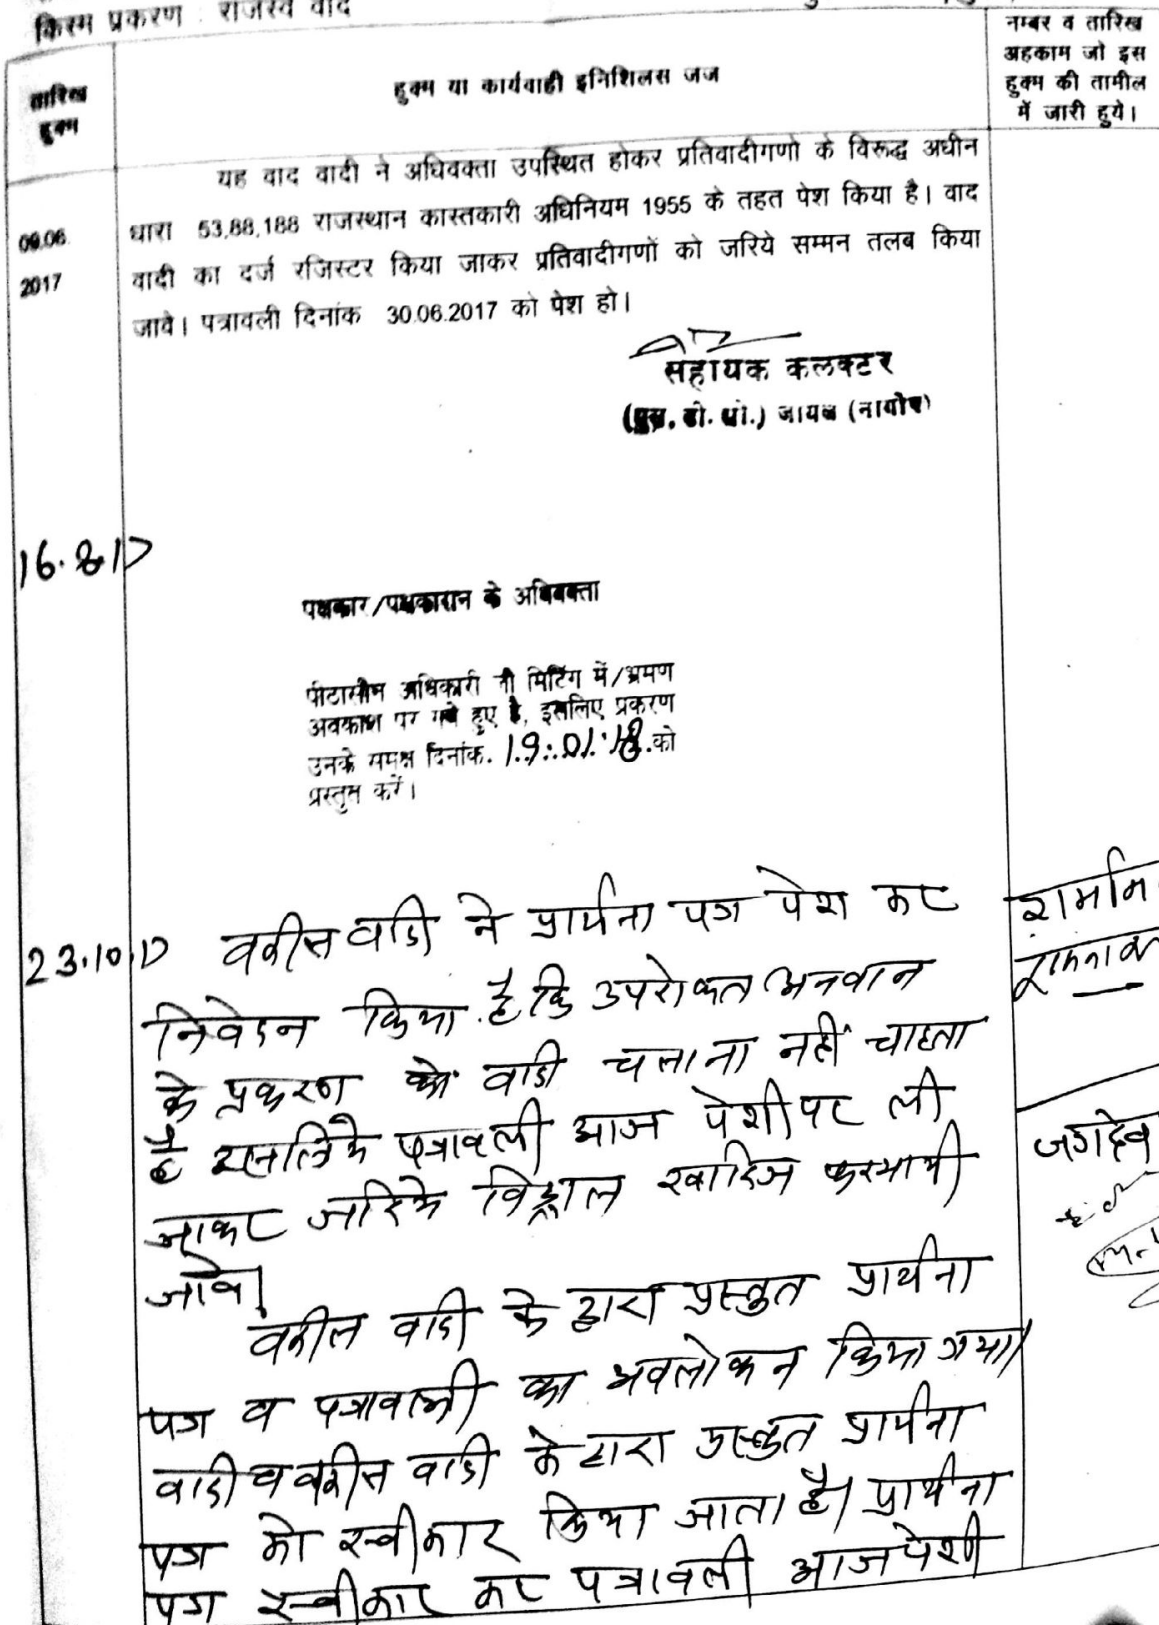 किस्म प्रकरण : राजस्व वाद
तारिख हुक्म
हुक्म या कार्यवाही इनिशिलस जज
नम्बर व तारिख
अहकाम जो इस
हुक्म की तामील
में जारी हुये।
यह वाद वादी ने अधिवक्ता उपस्थित होकर प्रतिवादीगणो के विरूद्ध अधीन
09.06. धारा 53,88,188 राजस्थान कास्तकारी अधिनियम 1955 के तहत पेश किया है। वाद
2017 वादी का दर्ज रजिस्टर किया जाकर प्रतिवादीगणों को जरिये सम्मन तलब किया
जावे। पत्रावली दिनांक 30.06.2017 को पेश हो।
सहायक कलक्टर
(एस. डी. ओ.) जायल (नागौर)
16.8.17
पक्षकार/पक्षकारान के अधिवक्ता
पीटासीन अधिकारी जी मिटिंग में/भ्रमण
अवकाश पर गये हुए है, इसलिए प्रकरण
उनके समक्ष दिनांक. 19.01.18 को
प्रस्तुत करें।
23.10.17 वकील वादी ने प्रार्थना पत्र पेश कर
निवेदन किया है कि उपरोक्त अनवान
के प्रकरण को वादी चलाना नहीं चाहता
है इसलिये पत्रावली आज पेशी पर ली
जाकर जरिये विड्राल खारिज फरमायी
जावे।
वकील वादी के द्वारा प्रस्तुत प्रार्थना
पत्र व पत्रावली का अवलोकन किया गया।
वादी व वकील वादी के द्वारा प्रस्तुत प्रार्थना
पत्र को स्वीकार किया जाता है। प्रार्थना
पत्र स्वीकार कर पत्रावली आज पेशी
जगदेव